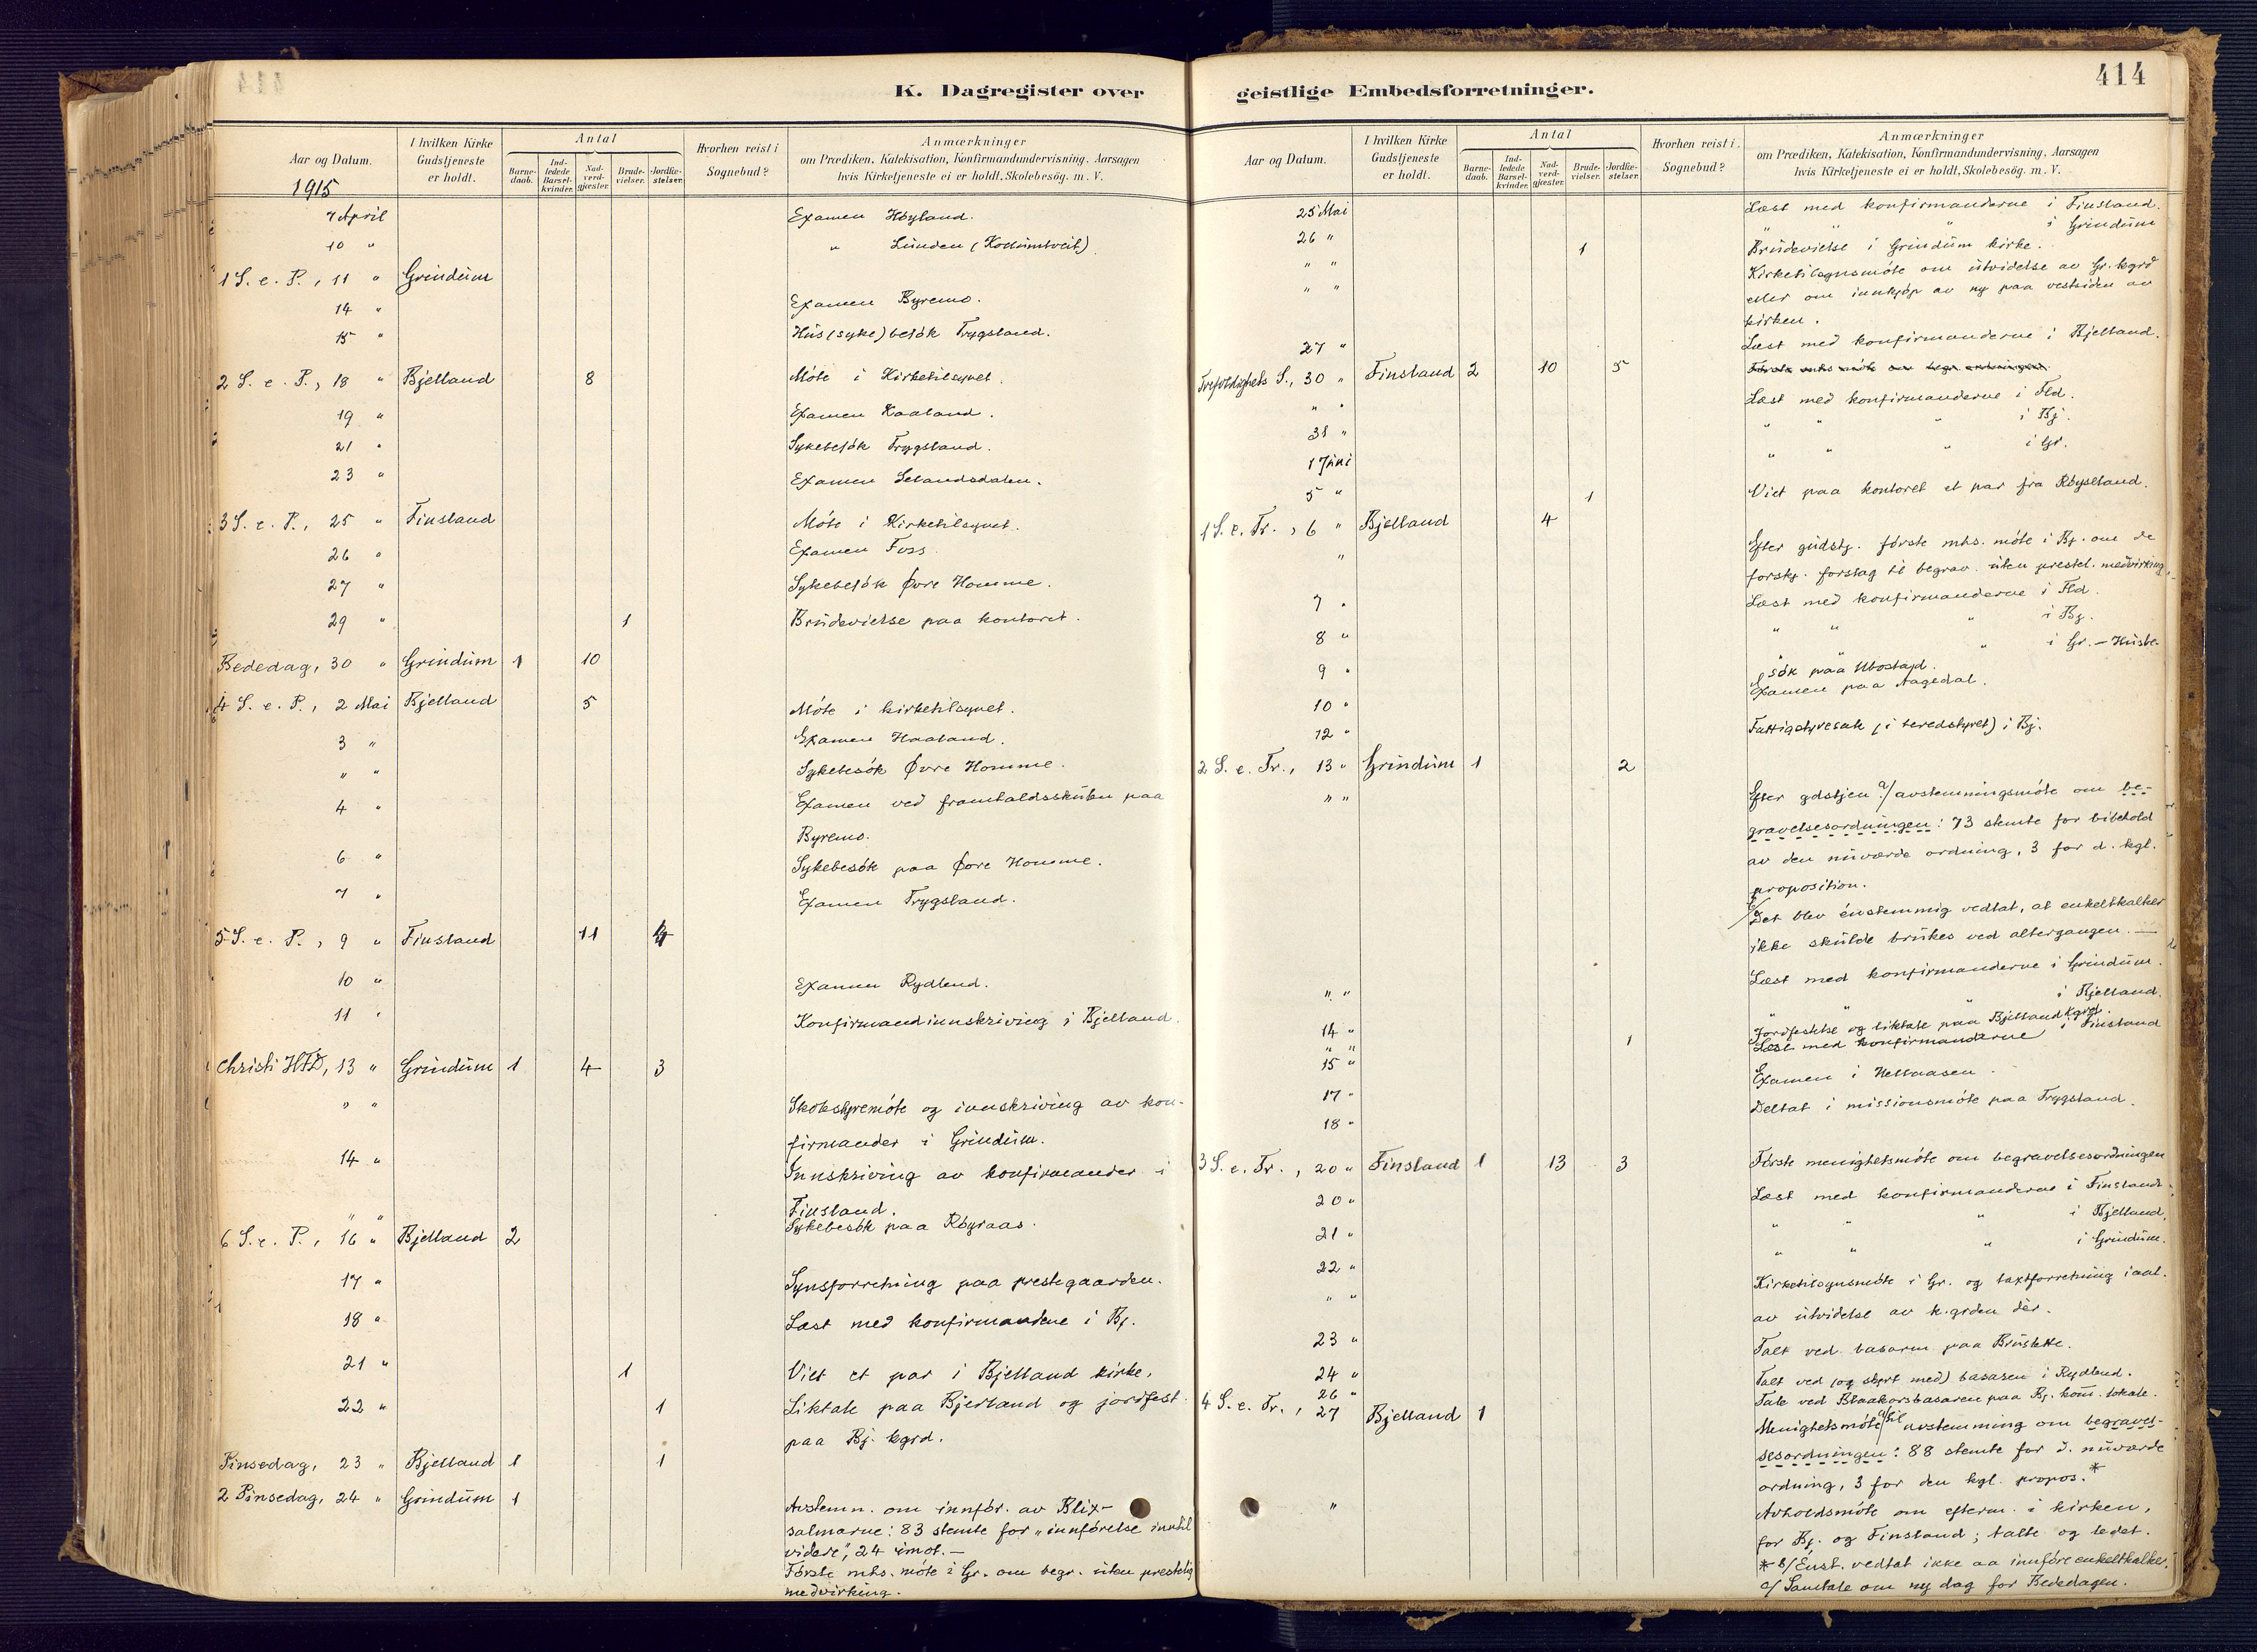 414
K. Dagregister over
geistlige Embedsforretninger.
Aar og Datum.
I hvilken Kirke Gudstjeneste er holdt.
Antal
Barnedaab. Indledede Barselkvinder. Nadverdgjæster. Brudevielser. Jordfæstelser.
Hvorhen reist i Sognebud?
Anmærkninger
om Prædiken, Katekisation, Konfirmandundervisning, Aarsagen
hvis Kirketjeneste ei er holdt, Skolebesög. m. V.
1915
7 April Examen Høyland.
10 " " Lunden
1 S. e. P., 11 " Grindum
14 " Examen Byremo.
15 " Hus (syke) besøk Trygsland.
2 S. e. P., 18 " Bjelland 8 Møte i Kirketilsynet.
19 " Examen Kaaland.
21 " Sykebesøk Trygsland.
23 " Examen Selandsdalen.
3 S. e. P., 25 " Finsland Møte i Kirketilsynet.
26 " Examen Foss.
27 " Sykebesøk Øvre Homme.
29 " 1 Brudevielse paa kontoret.
Bededag, 30 " Grindum 1 10
4 S. e. P., 2 Mai Bjelland 5 Møte i kirketilsynet.
3 " Examen Haaland.
" " Sykebesøk Øvre Homme.
4 " Examen ved framhaldsskulen paa
Byremo.
6 " Sykebesøk paa Øvre Homme.
7 " Examen Trygsland.
5 S. e. P., 9 " Finsland 11 4
10 " Examen Rydlend.
11 " Konfirmandinnskriving i Bjelland.
Christi HFD, 13 " Grindum 1 4 3
" " Skolestyremøte og innskriving av kon-
firmander i Grindum.
14 " Innskriving av konfirmander i
Finsland.
" " Sykebesøk paa Røyraas.
6 S. e. P., 16 " Bjelland 2
17 " Synsforretning paa prestegaarden.
18 " Læst med konfirmandene i Bj.
21 " 1 Viet et par i Bjelland kirke.
22 " 1 Liktale paa Bjerland og jordfest.
paa Bj. kgrd.
Pinsedag, 23 " Bjelland 1 1
2 Pinsedag, 24 " Grindum 1
Avstemn. om innfør. av Blix-
salmarne: 83 stemte for "innførelse inntil
videre", 24 imot. —
Første mhs. møte i Gr. om begr. uten prestelig
medvirking.
Aar og Datum.
I hvilken Kirke Gudstjeneste er holdt.
Antal
Barnedaab. Indledede Barselkvinder. Nadverdgjæster. Brudevielser. Jordfæstelser.
Hvorhen reist i Sognebud?
Anmærkninger
om Prædiken, Katekisation, Konfirmandundervisning, Aarsagen
hvis Kirketjeneste ei er holdt, Skolebesög. m. V.
25 Mai Læst med konfirmanderne i Finsland.
26 " " " i Grindum
" " 1 Brudevielse i Grindum kirke.
" " Kirketilsynsmøte om utvidelse av Gr. kgrd
eller om innkjøp av ny paa vestsiden av
kirken.
27 " Læst med konfirmanderne i Bjelland.
Trefoldighets S., 30 " Finsland 2 10 5 Første mhs møte om begr. ordningen.
" " Læst med konfirmanderne i Fld.
31 " " " " i Bj.
1 Juni " " " i Gr.
5 " 1 Viet paa kontoret et par fra Røyseland.
1 S. e. Tr., 6 " Bjelland 4
" Efter gudstj. første mhs. møte i Bj. om de
forskj. forslag til begrav. uten prestel. medvirking.
7 " Læst med konfirmanderne i Fld.
8 " " " " i Bj.
9 " " " i Gr. — Husbe-
søk paa Ubostad.
10 " Examen paa Aagedal.
12 " Fattigstyresak (i heredstyret) i Bj.
2 S. e. Tr., 13 " Grindum 1 2
" " Efter gdstjen a/ avstemningsmøte om be-
gravelsesordningen: 73 stemte for bibehold
av den nuværde ordning, 3 for d. kgl.
proposition.
b/ Det blev énstemmig vedtat, at enkeltkalker
ikke skulde brukes ved altergangen. —
" " Læst med konfirmanderne i Grindum.
14 " " " i Bjelland.
" " 1 Jordfestelse og liktale paa Bjelland kgrd.
15 " Læst med konfirmanderne i Finsland
17 " Examen i Hellaasen.
18 " Deltat i missionsmøte paa Trygsland.
3 S. e. Tr., 20 " Finsland 1 13 3 Første menighetsmøte om begravelsesordningen
20 " Læst med konfirmanderne i Finsland.
21 " " " " i Bjelland,
22 " " " " i Grindum.
" " Kirketilsynsmøte i Gr. og taxtforretning i aal.
av utvidelse av k.grden dèr.
23 " Talt ved basaren paa Bruslette.
24 " Talt ved (og styrt med) basasen i Rydlend.
26 " Tale ved Blaakorsbasaren paa Bj. kom. lokale.
4 S. e. Tr., 27 Bjelland 1 Menighetsmøte a/ til avstemming om begravel-
sesordningen: 88 stemte for d. nuværde
ordning, 3 for den kgl. propos.*
" Avholdsmøte om efterm. i kirken,
for Bj. og Finsland; talte og ledet.
* b/ Enst. vedtat ikke aa innføre enkeltkalke.
c/ Samtale om ny dag for Bededagen.